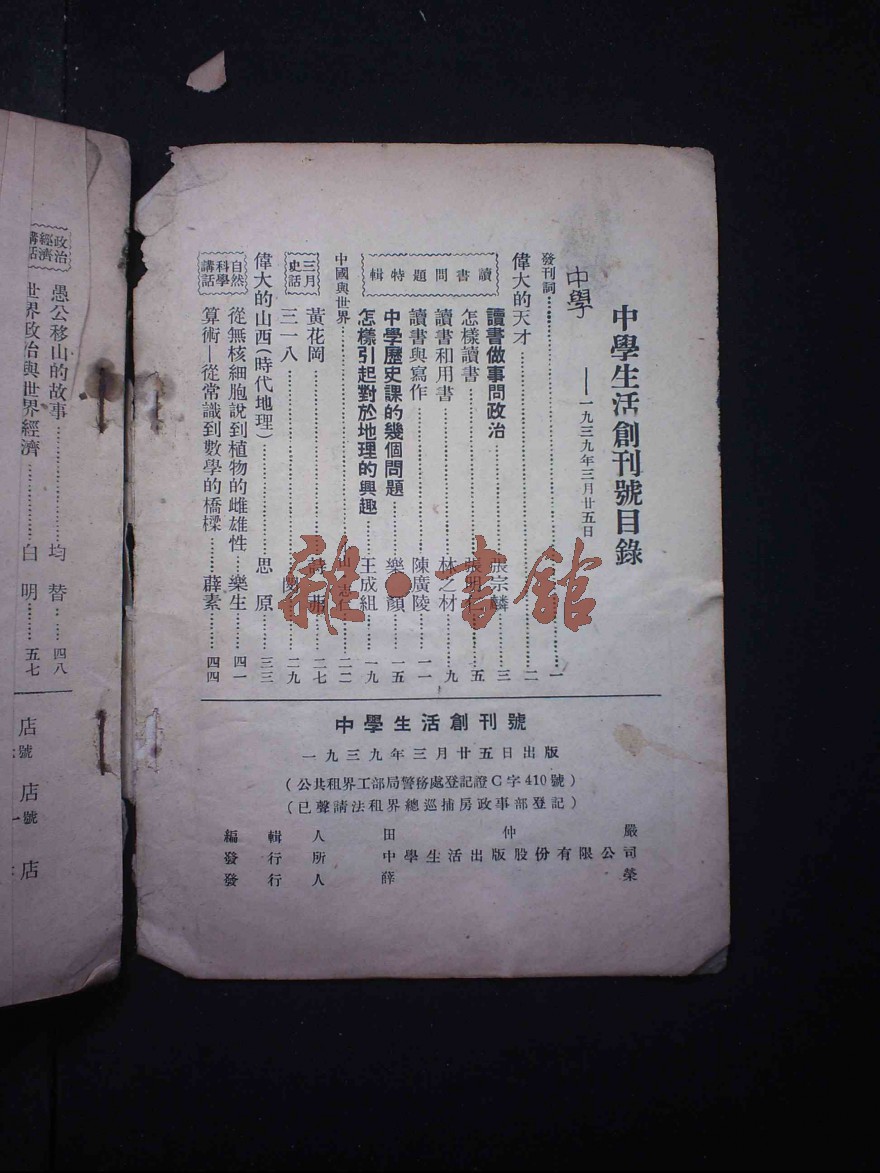 中學生活創刊號目錄
——一九三九年三月廿五日
中學
發刊詞……一
偉大的天才……二
讀書問題特輯
讀書做事問政治……張宗麟……三
怎樣讀書……張明仁……五
讀書和用書……林之材……九
讀書與寫作……陳廣陵……一一
中學歷史課的幾個問題……樂 顏……一五
怎樣引起對於地理的興趣……王成組……一九
中國與世界……志仁……二二
三月史話
黃花岡……二七
三一八……二九
偉大的山西(時代地理)……思 原……三三
自然科學講話
從無核細胞說到植物的雌雄性……樂生……四一
算術—從常識到數學的橋樑……薜素……四四
中學生活創刊號
一九三九年三月廿五日出版
(公共租界工部局警務處登記證C字410號)
(已聲請法租界總巡捕房政事部登記)
編輯人 田仲嚴
發行所 中學生活出版股份有限公司
發行人 薛榮
政治經濟講話
愚公移山的故事……均 替……四八
世界政治與世界經濟……白 明……五七
店
號
店
號
店
雜·書館